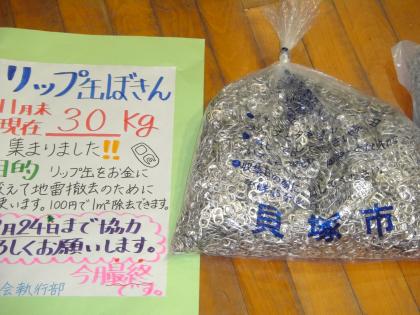 リップ缶ぼきん
11月末
現在 30 Kg
集まりました!!
目的 リップ缶をお金に
変えて地雷撤去のために
使います。100円で1m²除去できます。
月24日まで協力
ろしくお願いします。
今月最終
です。
会執行部
貝塚市